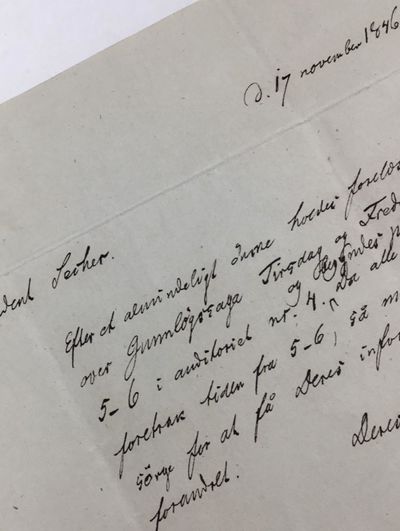 d. 17 november 1896
dent Secher.
Efter et almindeligt ønske holdes forelæs
over Gunnlögssaga Tirsdag og Fred
og begyndes
5-6 i auditoriet nr. 4. Da alle
foretrak tiden fra 5-6, så m
sörge for at få Deres infor
forandret.
Deres